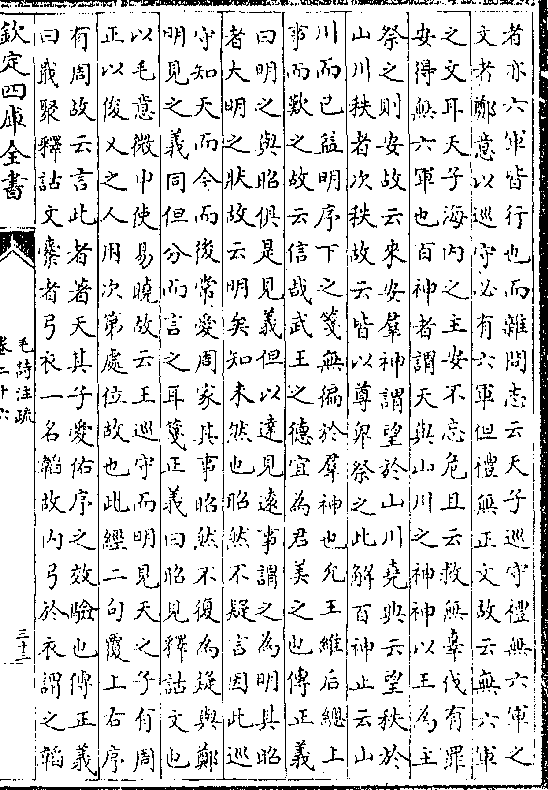 者亦六軍皆行也而雜問志云天子巡守禮無六軍之
文者鄭意以巡守必有六軍但禮無正文故云無六軍
之文耳天子海内之主安不忘危且云救無辜伐有罪
安得無六軍也百神者謂天與山川之神神以王為主
祭之則安故云來安羣神謂望於山川堯典云望秩於
山川秩者次秩故云皆以尊卑祭之此解百神止云山
川而已益明序下之箋無徧於羣神也允王維后緫上
事而歎之故云信哉武王之德宜為君美之也傳正義
曰明之與昭俱是見義但以達見遠事謂之為明其昭
者大明之狀故云明矣知未然也昭然不疑言因此巡
守知天而今而後常愛周家其事昭然不復為疑與鄭
明見之義同但分而言之耳箋正義曰昭見釋詁文也
以毛意微中使易曉故云王巡守而明見天之子有周
正以俊乂之人用次第處位故也此經二句覆上右序
有周故云言此者著天其子愛佑序之效驗也傳正義
曰戢聚釋詁文櫜者弓衣一名韜故内弓於衣謂之韜
欽定四庫全書
毛詩注疏
卷二十六
三十二